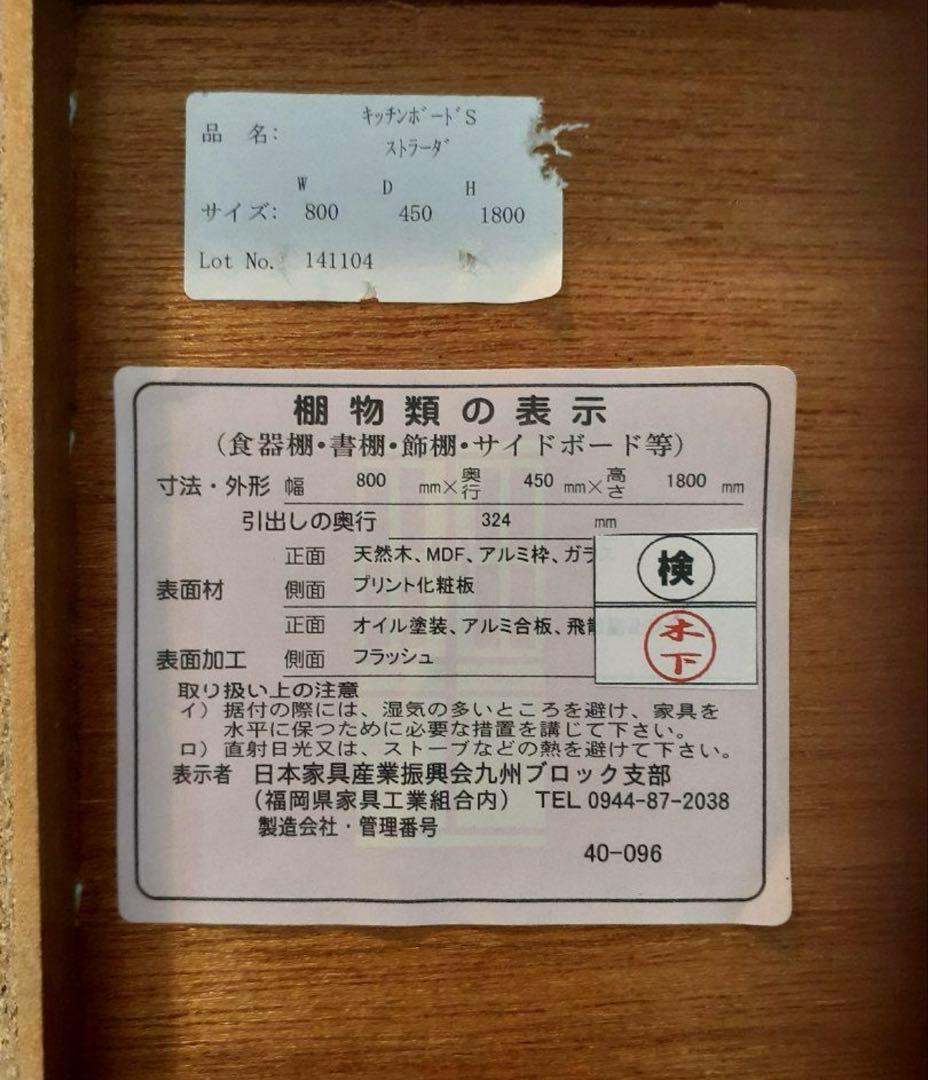 品 名: キッチンボードS
ストラーダ
W D H
サイズ: 800 450 1800
Lot No. 141104
棚物類の表示
(食器棚・書棚・飾棚・サイドボード等)
寸法・外形 幅 800 mm×奥行 450 mm×高さ 1800 mm
引出しの奥行 324 mm
表面材 正面 天然木、MDF、アルミ枠、ガラ
側面 プリント化粧板
表面加工 正面 オイル塗装、アルミ合板、飛
側面 フラッシュ
検
木下
取り扱い上の注意
イ) 据付の際には、湿気の多いところを避け、家具を
水平に保つために必要な措置を講じて下さい。
ロ) 直射日光又は、ストーブなどの熱を避けて下さい。
表示者 日本家具産業振興会九州ブロック支部
(福岡県家具工業組合内) TEL 0944-87-2038
製造会社・管理番号
40-096